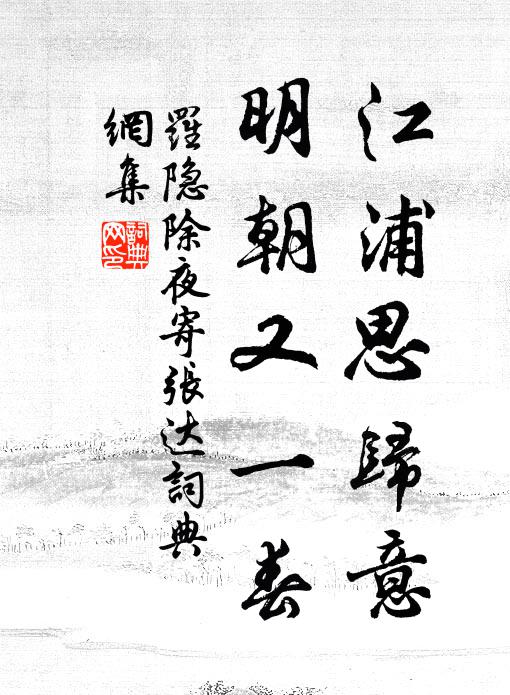 江浦思歸意
明朝又一春
羅隐除夜寄張达詞典
網集
詞典
网印